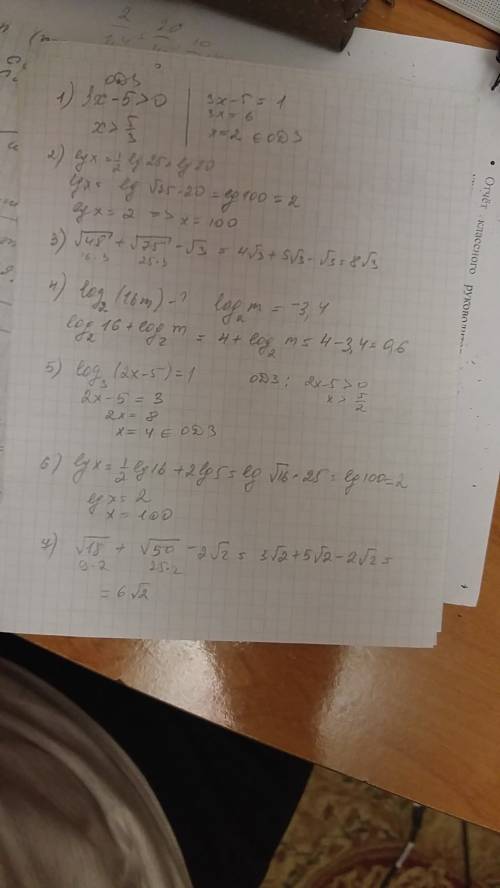 ОДЗ
1) 3x-5>0
x>5/3
3x-5=1
3x=6
x=2 ∈ ОДЗ
2) lgx=1/2 lg25+lg20
lgx= lg √25·20=lg100=2
lgx=2 => x=100
3) √48+√75-√3=4√3+5√3-√3=8√3
16·3 25·3
4) log₂(16m)-? log₂m=-3,4
log₂16+log₂m=4+log₂m=4-3,4=0,6
5) log₃(2x-5)=1 ОДЗ: 2x-5>0
2x-5=3 x>5/2
2x=8
x=4 ∈ ОДЗ
6) lgx=1/2 lg16+2lg5=lg √16·25=lg100=2
lgx=2
x=100
7) √18+√50-2√2=3√2+5√2-2√2=
9·2 25·2
=6√2
• Отчёт классного